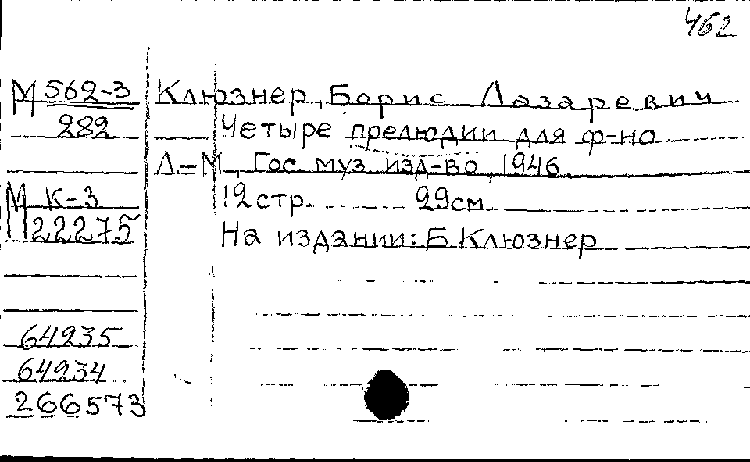 462
М 562-3 Клюзнер, Борис Лазаревич
282 Четыре прелюдии для ф-но
Л-М, Гос. муз. изд-во, 1946
М К-3 12 стр. 29 см.
22275 На издании: Б. Клюзнер
64935
64934
266573